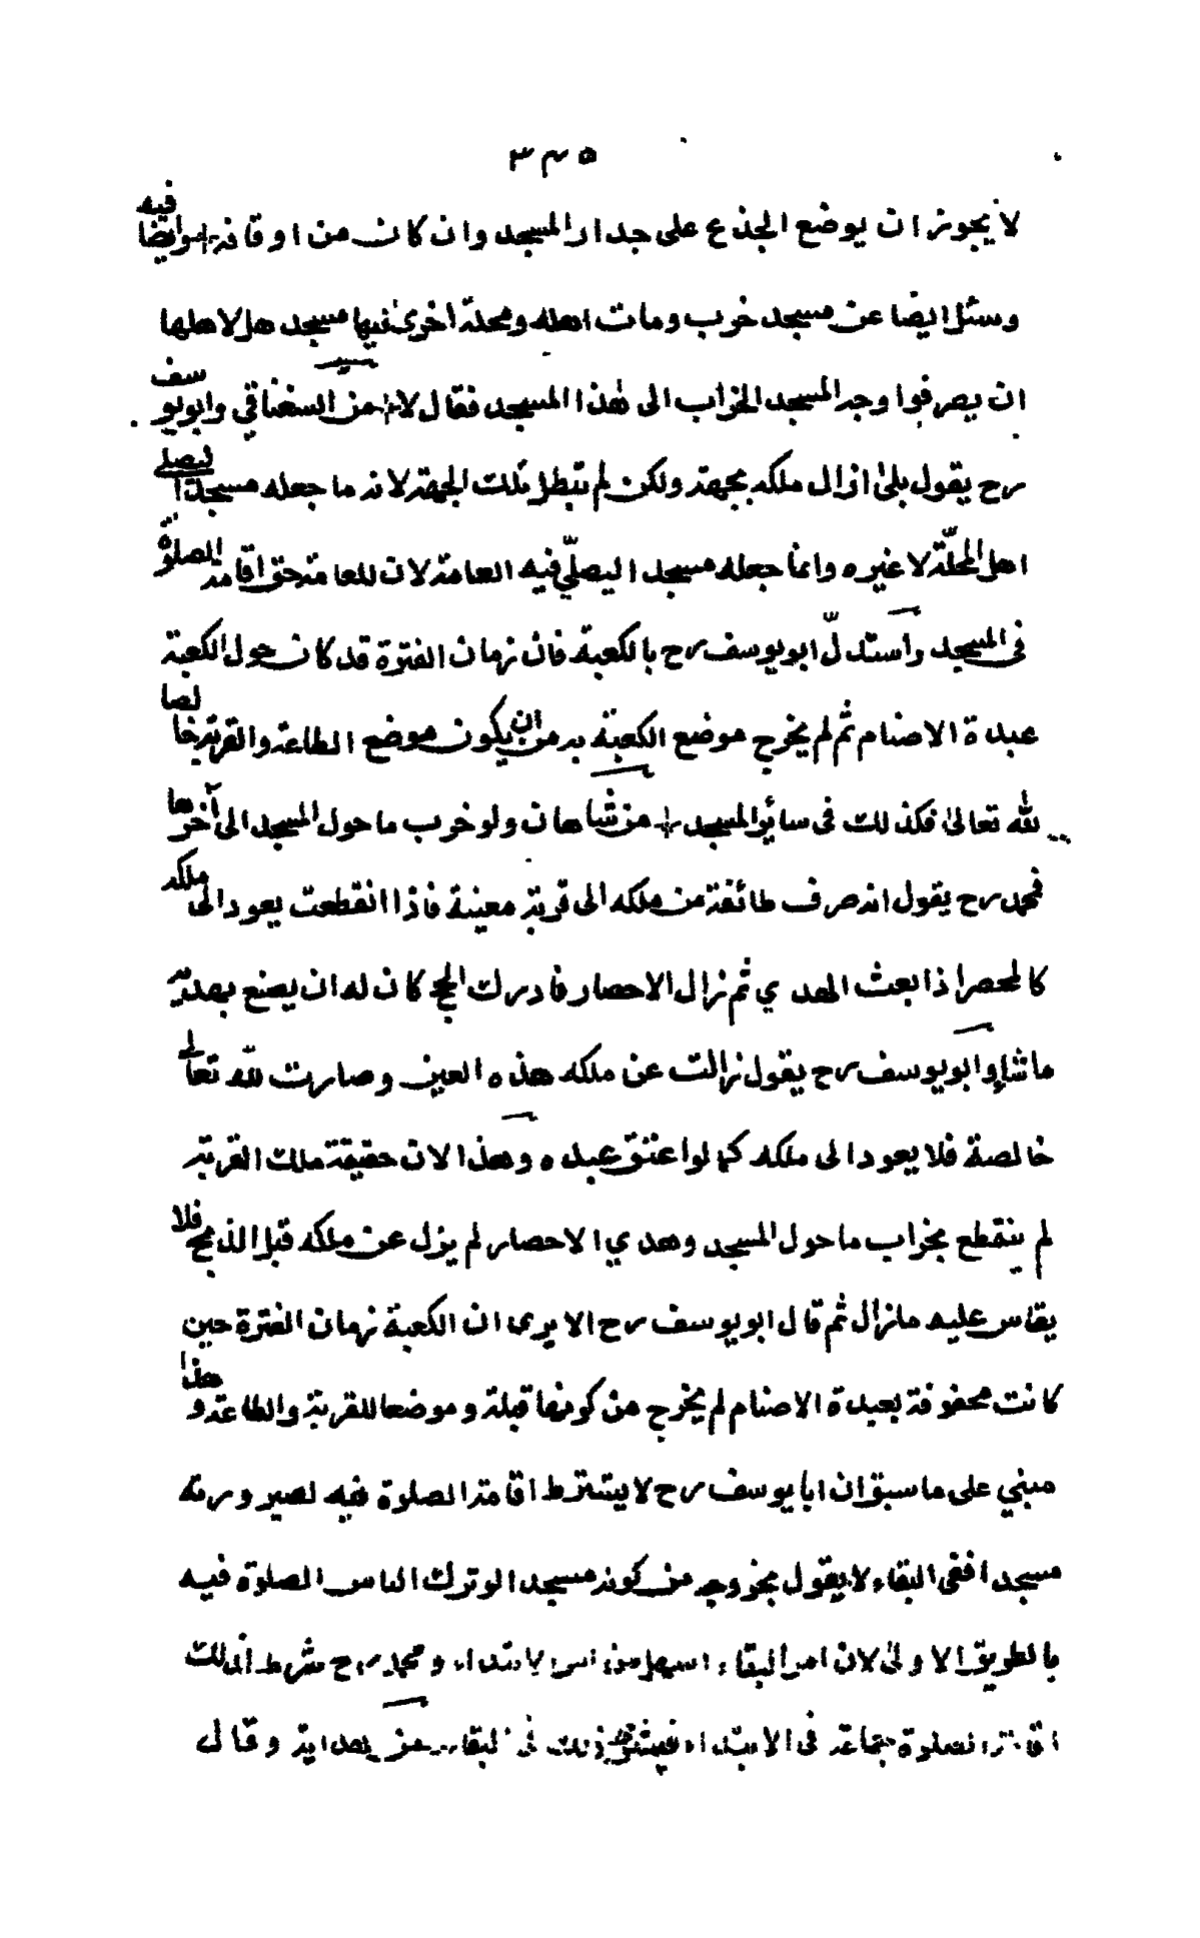 ٣٢٥
لا يجوز ان يوضع الجذع على جدار المسجد وان كان من اوقافه وايضا فيه
وسئل ايضا عن مسجد خرب ومات اهله ومحلة اخرى فيها مسجد هل لاهلها
ان يصرفوا وجه المسجد الخراب الى هذا المسجد فقال لا من السغناقي وابويوسف
رح يقول بلى ازال ملكه بجهة ولكن لم تبطل تلك الجهة لانه ما جعله مسجدا ليصلي
اهل المحلّة لا غيره وانما جعله مسجدا ليصلّي فيه العامة لان للعامة حق اقامة الصلوة
فى المسجد واستدلّ ابويوسف رح بالكعبة فان زمان الفترة قد كان حول الكعبة
عبدة الاصنام ثم لم يخرج موضع الكعبة به من ان يكون موضع الطاعة والقربة خالصا
لله تعالى فكذلك فى سائر المسجد من شاهان ولو خرب ما حول المسجد الى آخرها
فمحمد رح يقول انه صرف طائفة من ملكه الى قربة معينة فاذا انقطعت يعود الى ملكه
كالمحصر اذا بعث الهدي ثم زال الاحصار فادرك الحج كان له ان يصنع بهديه
ماشاء وابويوسف رح يقول زالت عن ملكه هذه العين وصارت لله تعالى
خالصة فلا يعود الى ملكه كما لو اعتق عبده وهذا لان حقيقة ملك القربة
لم ينقطع بخراب ما حول المسجد وهدي الاحصار لم يزل عن ملكه قبل الذبح فلا
يقاس عليه مازال ثم قال ابويوسف رح الا يرى ان الكعبة زمان الفترة حين
كانت محفوفة بعبدة الاصنام لم يخرج من كونها قبلة وموضعا للقربة والطاعة وهذا
مبني على ما سبق ان ابا يوسف رح لا يشترط اقامة الصلوة فيه لصيرورته
مسجدا ففى البقاء لا يقول بخروجه من كونه مسجدا لو ترك الناس الصلوة فيه
بالطريق الاولى لان امر البقاء اسهل من امر الابتداء ومحمد رح شرط ذلك
اقامة الصلوة بجماعة فى الابتداء فيشترط ذلك فى البقاء من بعد ايد وقال